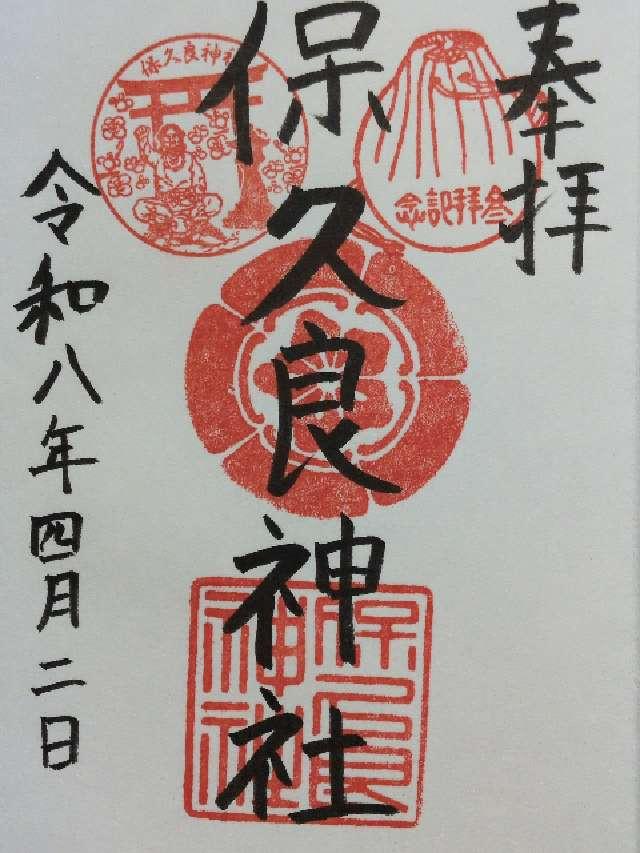 奉拝
保久良神社
令和八年四月二日
保久良神社
叄拝記念
保久良神社